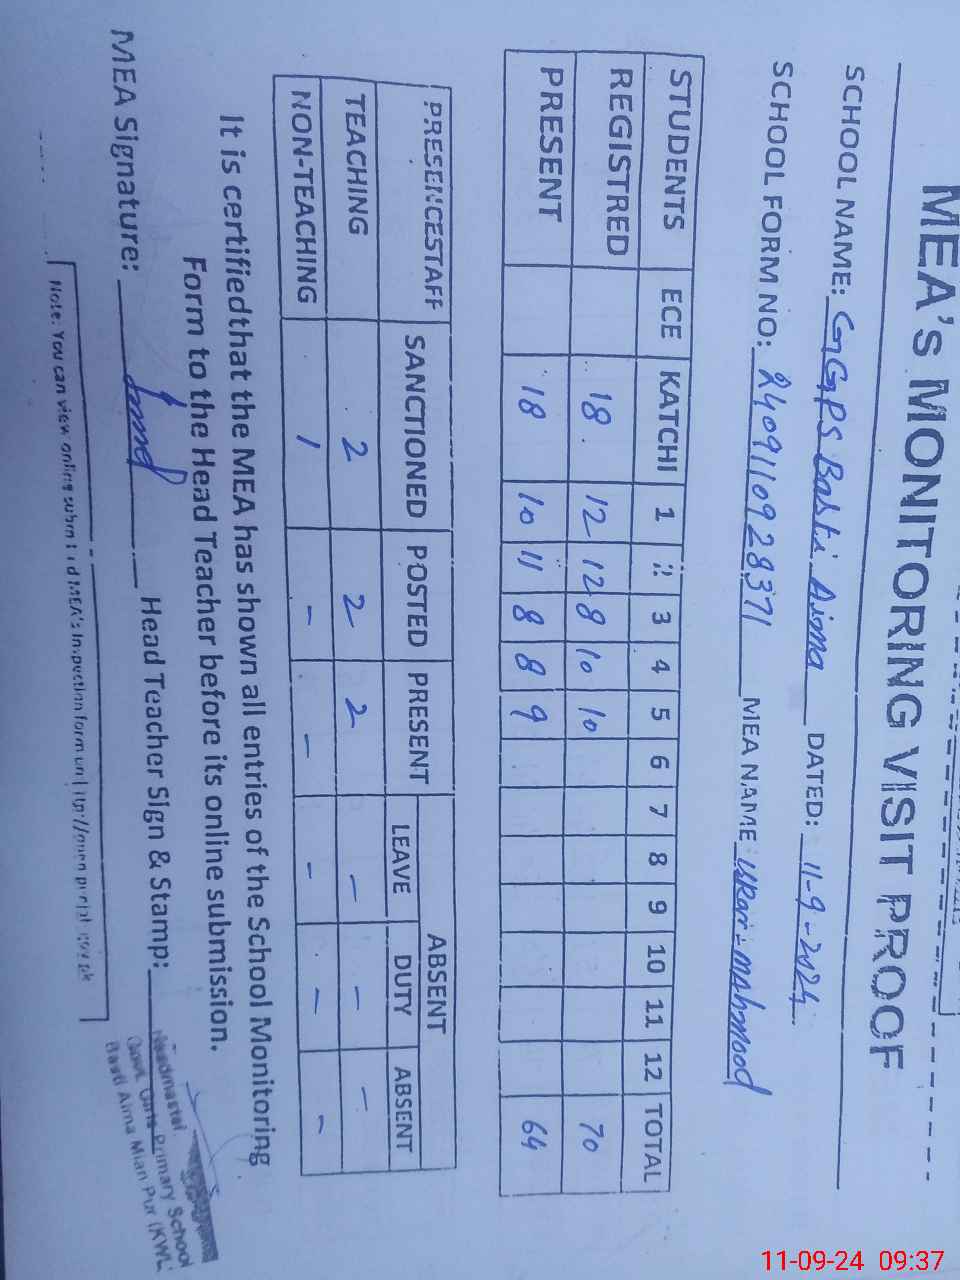 MEA's MONITORING VISIT PROOF
SCHOOL NAME: GGPS Basti Aima DATED: 11-9-2024
SCHOOL FORM NO: 2409110928371 MEA NAME: Mahmood
STUDENTS ECE KATCHI 1 2 3 4 5 6 7 8 9 10 11 12 TOTAL
REGISTRED 18 12 12 8 10 10 70
PRESENT 18 10 11 8 8 9 64
PRESENCESTAFF SANCTIONED POSTED PRESENT ABSENT
LEAVE DUTY ABSENT
TEACHING 2 2 2 - - -
NON-TEACHING 1 - - - - -
It is certifiedthat the MEA has shown all entries of the School Monitoring
Form to the Head Teacher before its online submission.
MEA Signature: Head Teacher Sign & Stamp:
Headmaster
Govt. Girls Primary School
Basti Aima Mian Pur (KWL
Note: You can view online submitted MEA's Inspection form on
11-09-24 09:37